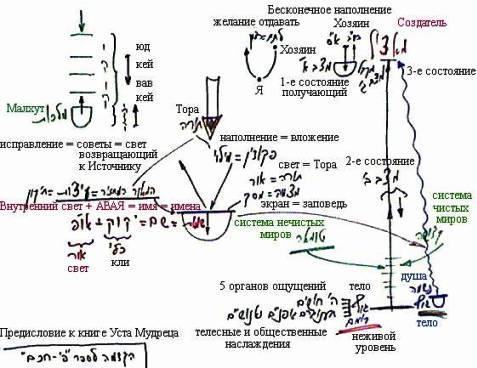 Бесконечное наполнение
желание отдавать
Хозяин
Создатель
юд
кей
вав
кей
Хозяин
Я
1-е состояние
получающий
3-е состояние
Малхут
מלכות
Тора
תורה
исправление = советы = свет
возвращающий
к Источнику
наполнение = вложение
свет = Тора
תורה = אור
2-е состояние
экран = заповедь
מצוה = מסך
Внутренний свет + АВАЯ = имя = имена
система нечистых
миров
система
чистых
миров
свет
אור
кли
כלי
душа
נשמה
5 органов ощущений
тело
тело
גוף
телесные и общественные
наслаждения
неживой
уровень
Предисловие к книге Уста Мудреца
הקדמה לספר "פי-חכם"